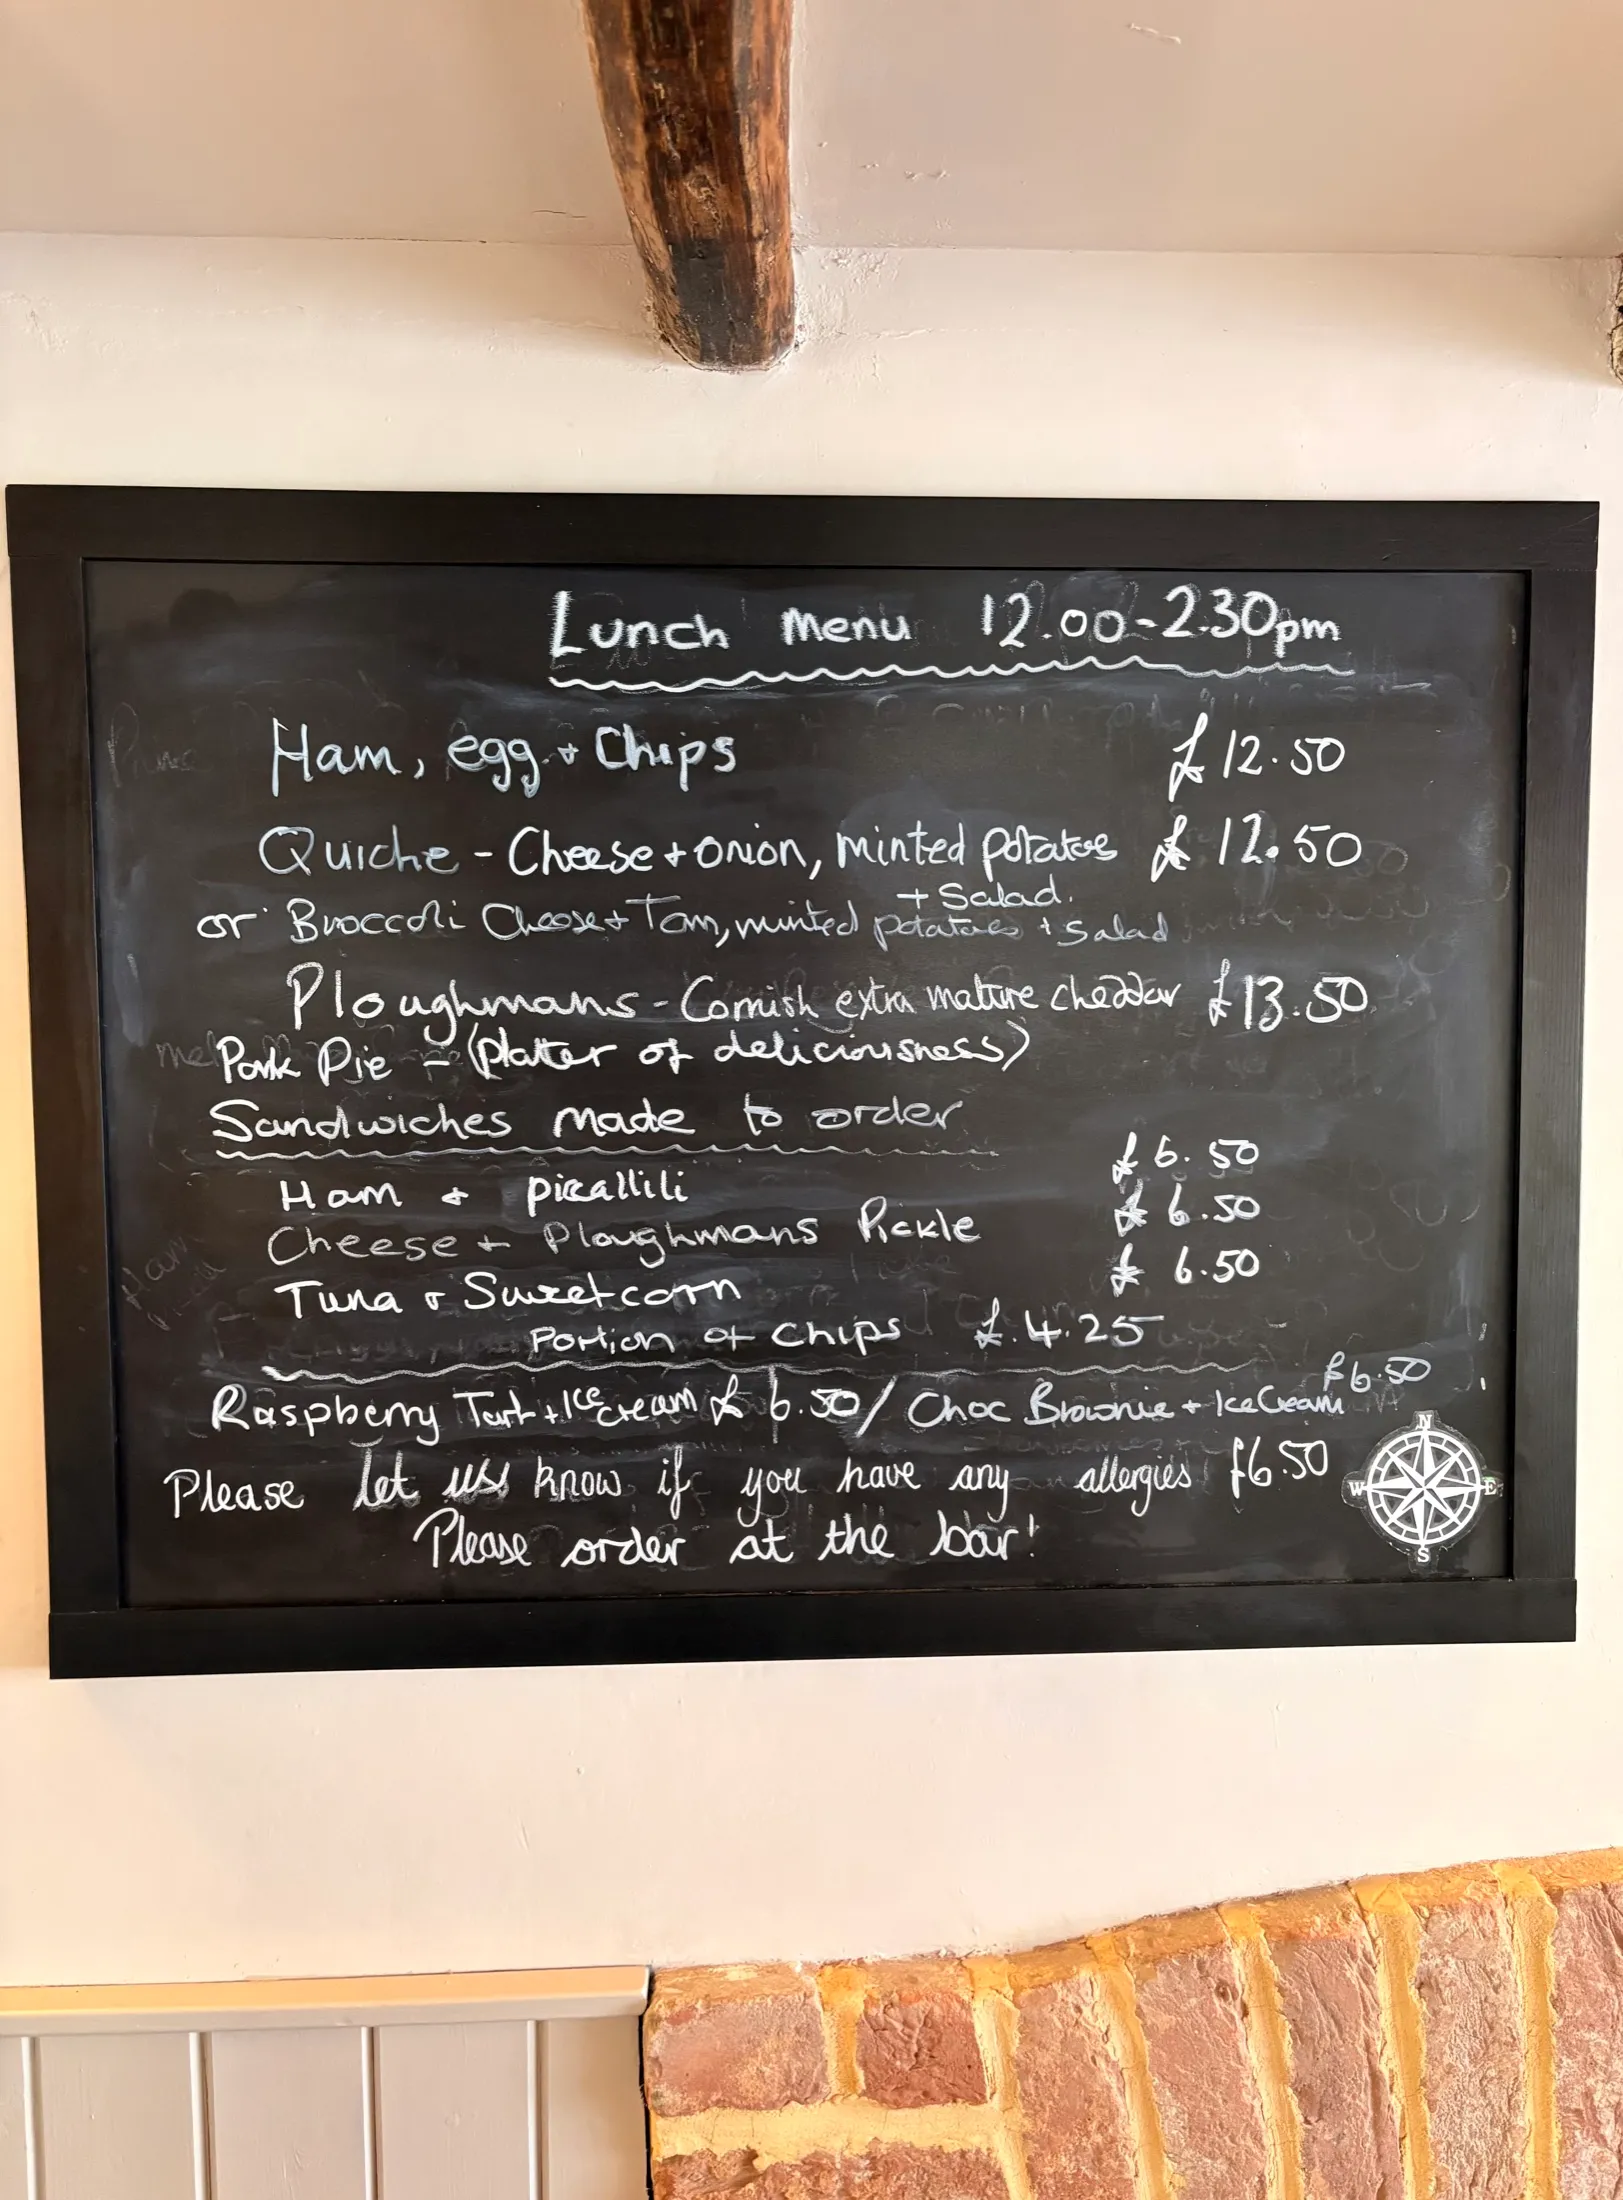 Lunch Menu 12.00-2.30pm
Ham, egg + Chips £12.50
Quiche - Cheese + onion, minted potatoes £12.50
+ Salad.
or Broccoli Cheese + Tom, minted potatoes + Salad
Ploughmans - Cornish extra mature cheddar £13.50
Pork Pie - (platter of deliciousness)
Sandwiches made to order
Ham + picallili £6.50
Cheese + Ploughmans Pickle £6.50
Tuna + Sweetcorn £6.50
Portion of Chips £4.25
Raspberry Tart + Ice cream £6.50 / Choc Brownie + Ice Cream £6.50
Please let us know if you have any allergies £6.50
Please order at the bar!
N
W E
S